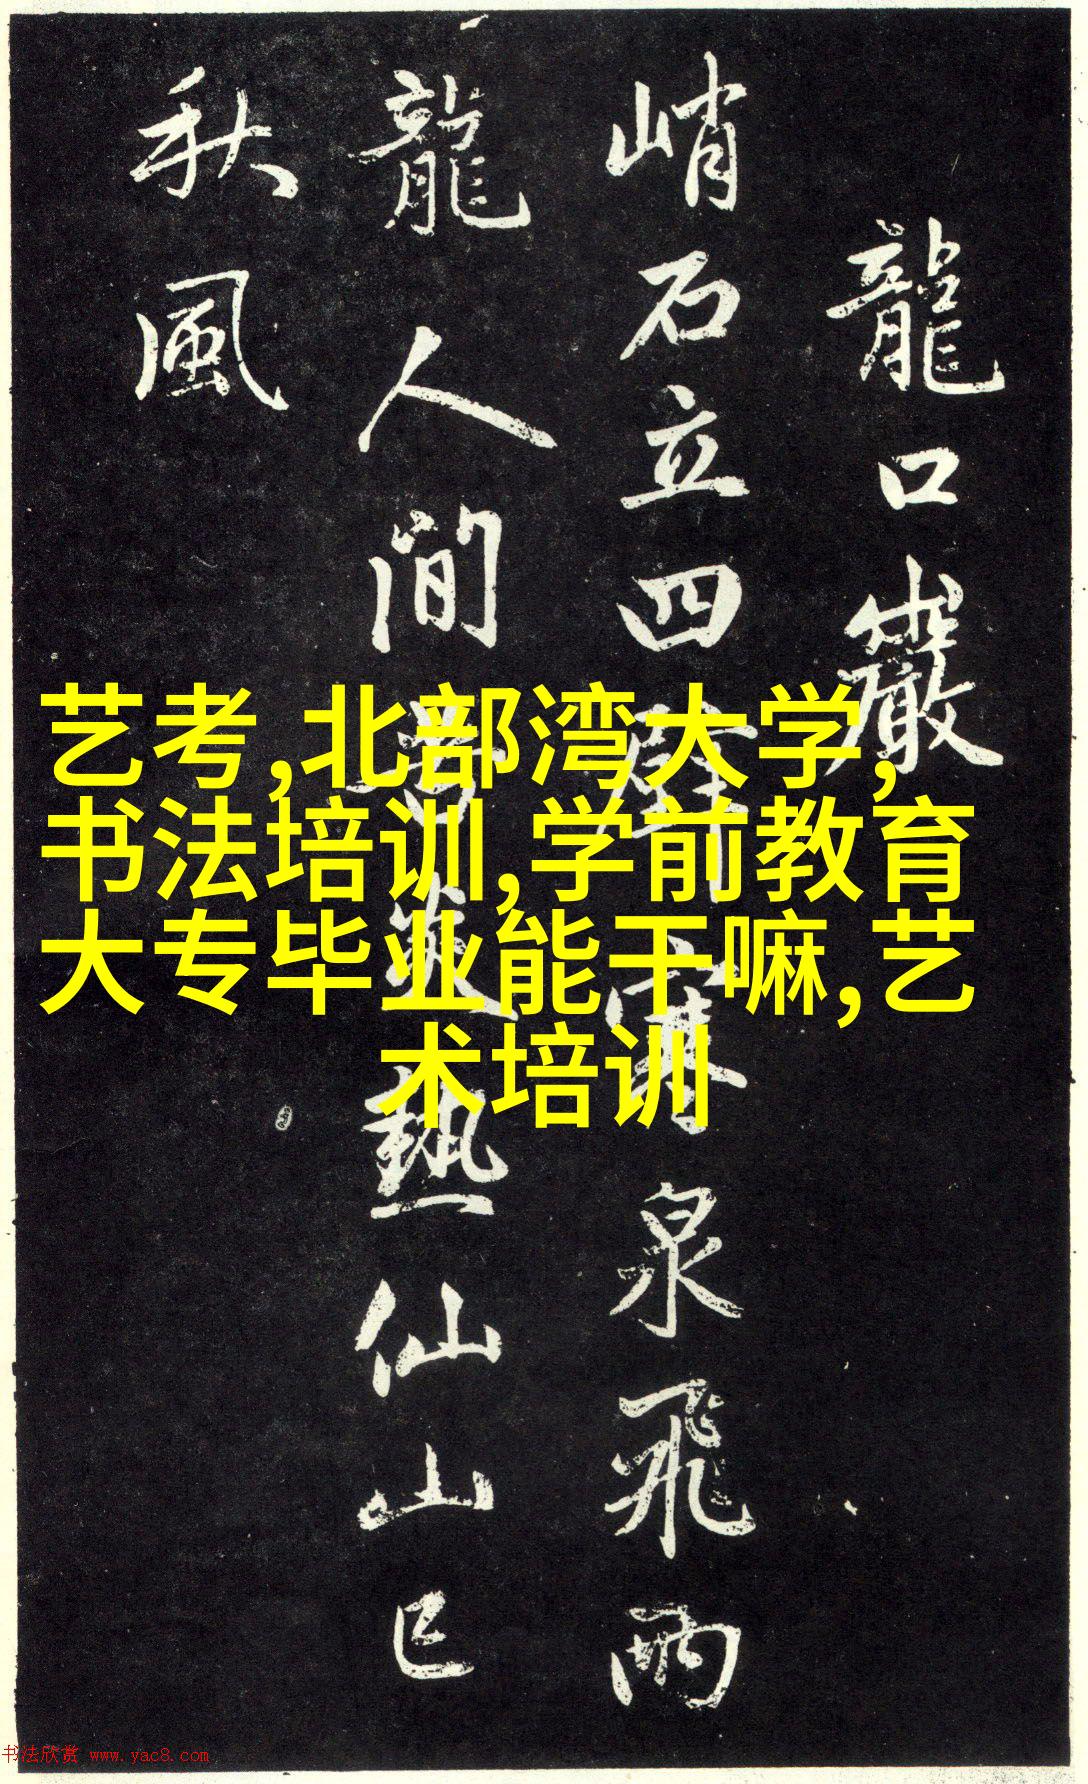 龍口巖
峭石立四壁寒泉飛兩
龍人間苦炎熱仙山已
秋風
艺考,北部湾大学,
书法培训,学前教育
大专毕业能干嘛,艺
术培训
书法欣赏 www.yac8.com